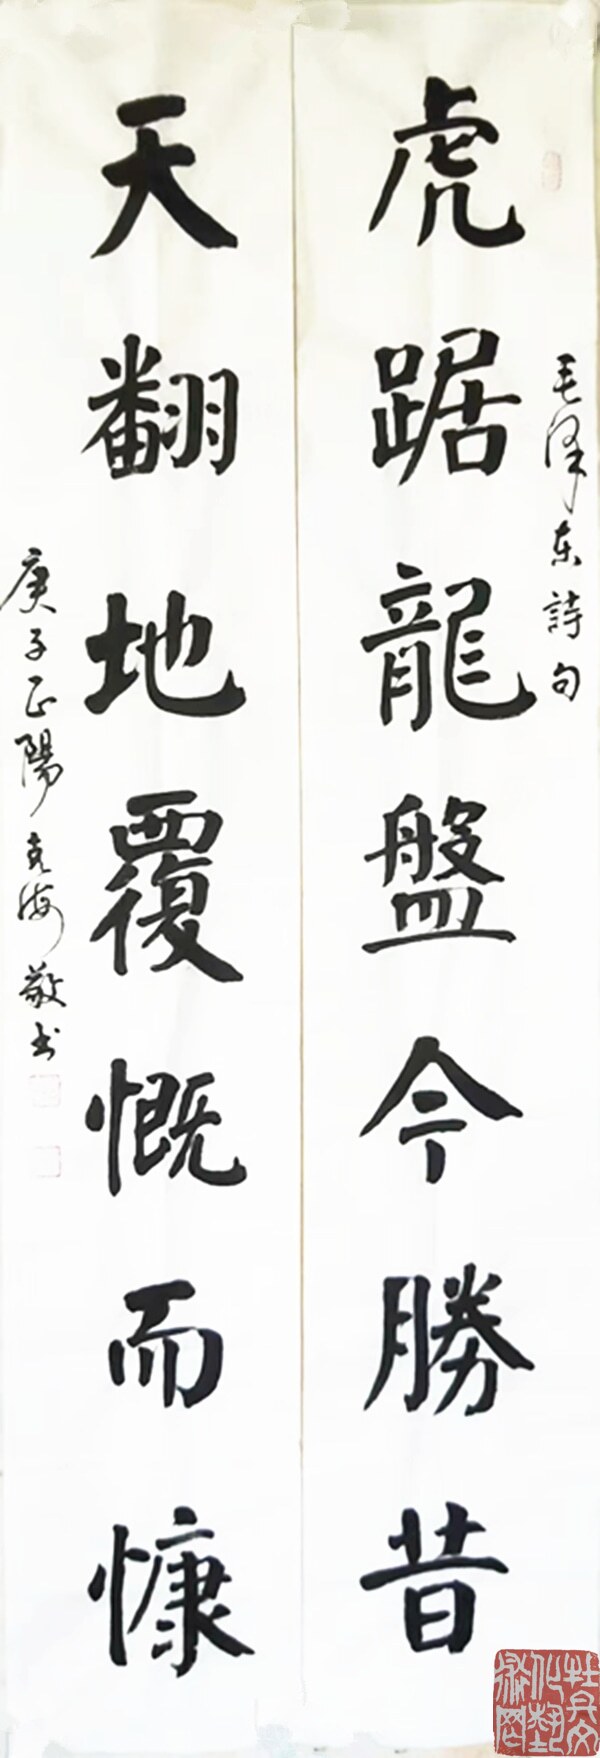 毛泽东詩句
虎踞龍盤今勝昔
天翻地覆慨而慷
庚子正陽敬书